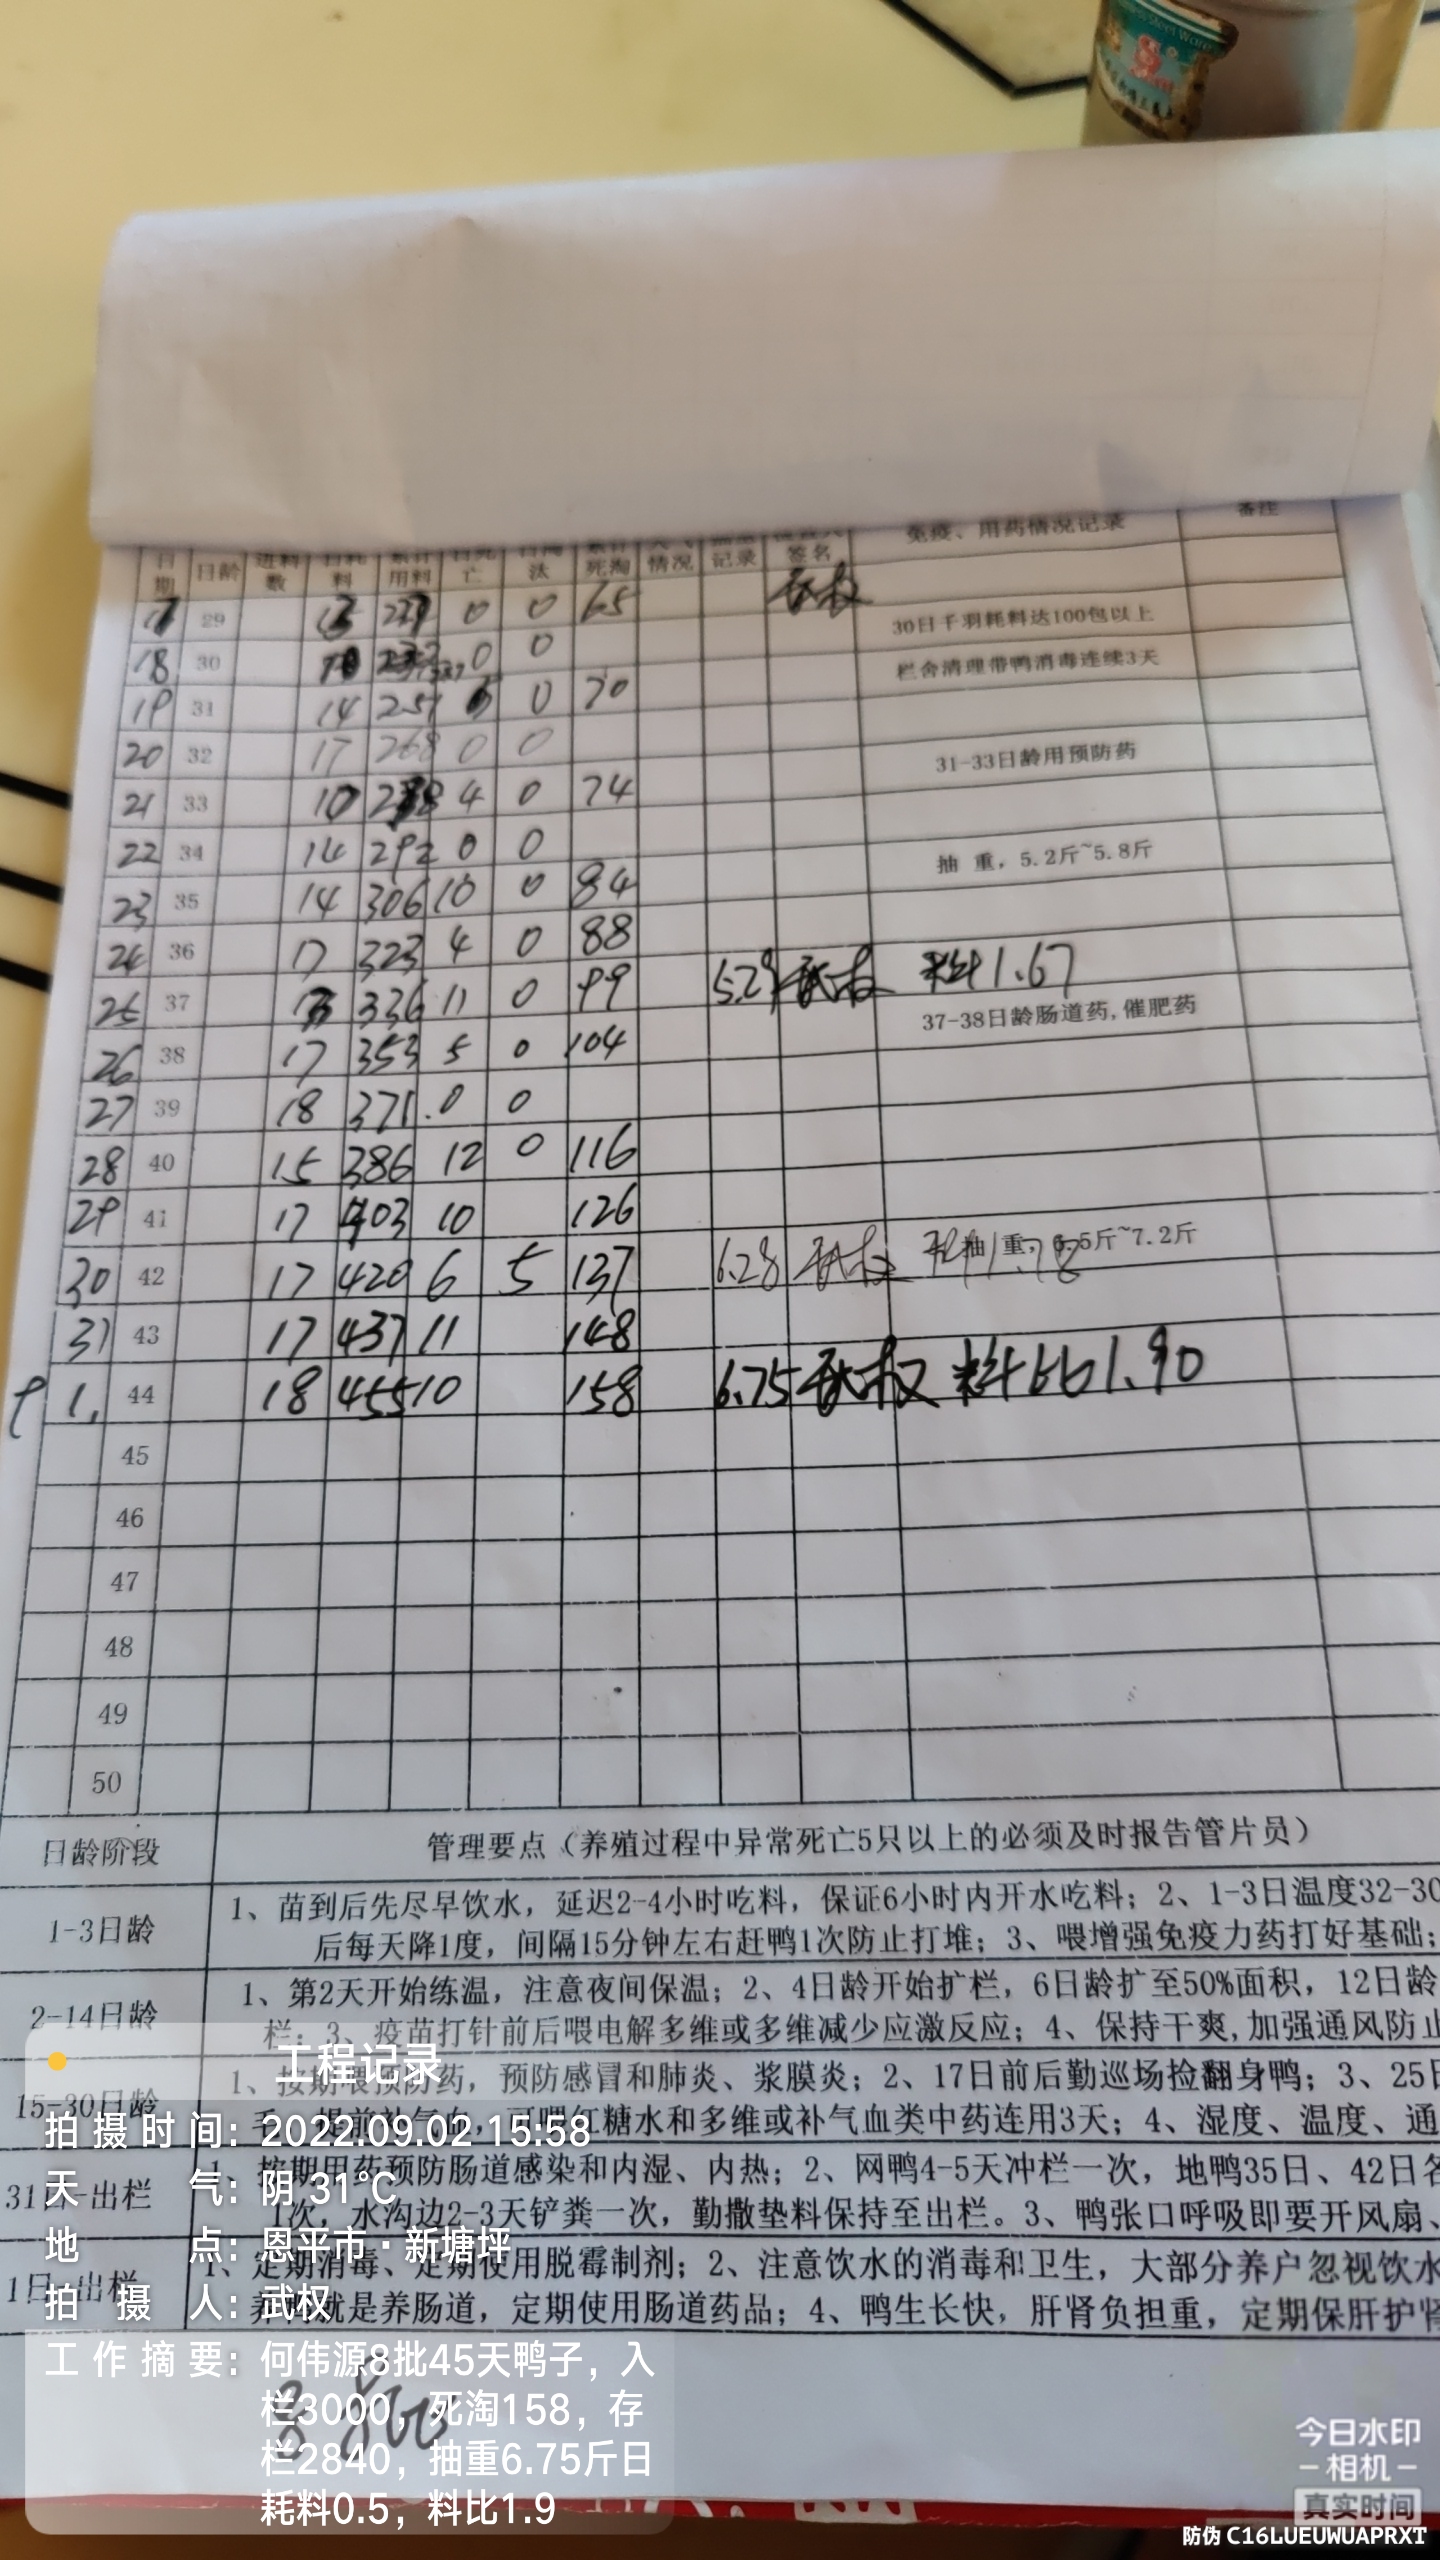 日期 日龄 进料数 日耗料 累计用料 日死亡 日淘汰 累计死淘 天气情况 记录 签名 免疫、用药情况记录 备注
17 29 0 0 65 武权
30日千羽耗料达100包以上
18 30 0 0
栏舍清理带鸭消毒连续3天
19 31 14 251 0 70
20 32 17 268 0 0
31-33日龄用预防药
21 33 10 4 0 74
22 34 14 292 0 0
抽 重，5.2斤~5.8斤
23 35 14 306 10 0 84
24 36 17 323 4 0 88
25 37 13 336 11 0 99 5.29 武权 料1.67
37-38日龄肠道药,催肥药
26 38 17 353 5 0 104
27 39 18 371 0 0
28 40 15 386 12 0 116
29 41 17 403 10 126
抽 重，6.5斤~7.2斤
30 42 17 420 6 5 137 6.28 武权 料1.78
31 43 17 437 11 148
1. 44 18 455 10 158 6.75 武权 料比1.90
45
46
47
48
49
50
日龄阶段 管理要点（养殖过程中异常死亡5只以上的必须及时报告管片员）
1-3日龄 1、苗到后先尽早饮水，延迟2-4小时吃料，保证6小时内开水吃料；2、1-3日温度32-30
后每天降1度，间隔15分钟左右赶鸭1次防止打堆；3、喂增强免疫力药打好基础；
2-14日龄 1、第2天开始练温，注意夜间保温；2、4日龄开始扩栏，6日龄扩至50%面积，12日龄
栏；3、疫苗打针前后喂电解多维或多维减少应激反应；4、保持干爽,加强通风防止
15-30日龄 1、按期喂预防药，预防感冒和肺炎、浆膜炎；2、17日前后勤巡场捡翻身鸭；3、25日
毛，提前补气血，可喂红糖水和多维或补气血类中药连用3天；4、湿度、温度、通
31日-出栏 1、按期用药预防肠道感染和内湿、内热；2、网鸭4-5天冲栏一次，地鸭35日、42日各
1次，水沟边2-3天铲粪一次，勤撒垫料保持至出栏。3、鸭张口呼吸即要开风扇、
1日-出栏 1、定期消毒、定期使用脱霉制剂；2、注意饮水的消毒和卫生，大部分养户忽视饮水
养鸭就是养肠道，定期使用肠道药品；4、鸭生长快，肝肾负担重，定期保肝护肾
工程记录
拍摄时间：2022.09.02 15:58
天气：阴 31℃
地点：恩平市·新塘坪
拍摄人：武权
工作摘要：何伟源8批45天鸭子，入
栏3000，死淘158，存
栏2840，抽重6.75斤日
耗料0.5，料比1.9
今日水印
相机
真实时间
防伪 C16LUEUWUAPRXT